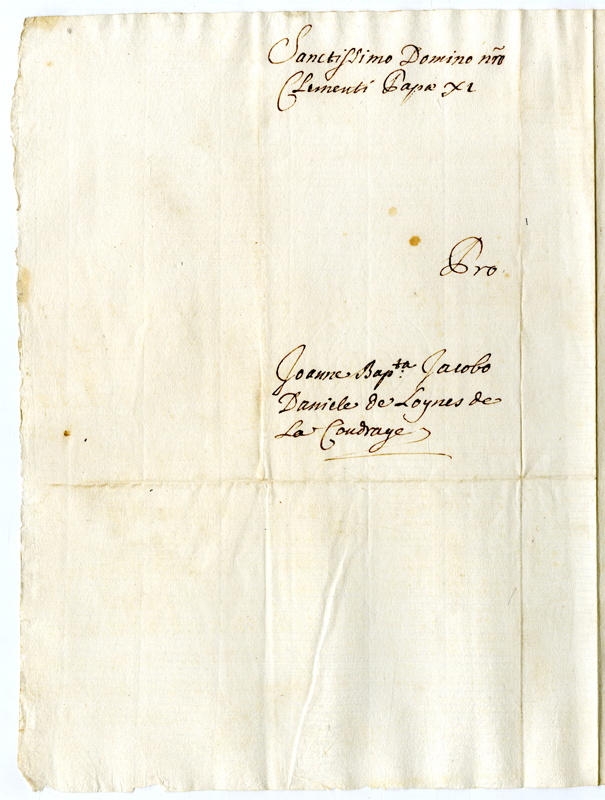 Sanctissimo Domino nr̃o
Clementi Papæ XI
Pro
Joanne Bap.ta Jacobo
Daniele de Loynes de
La Coudraye